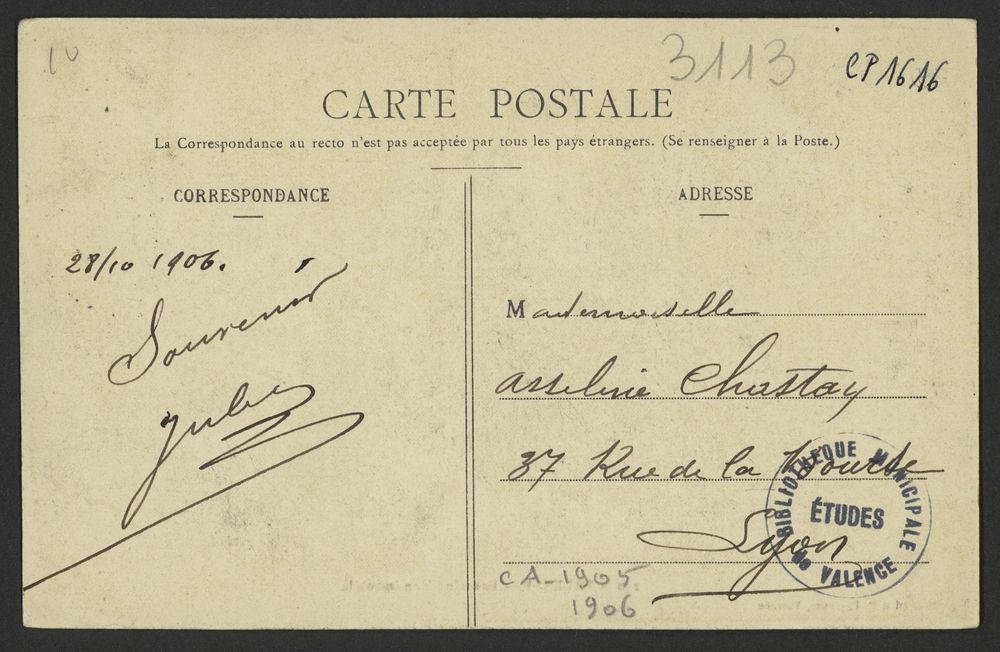 3113
CP1616
CARTE POSTALE
La Correspondance au recto n'est pas acceptée par tous les pays étrangers. (Se renseigner à la Poste.)
CORRESPONDANCE
28/10 1906.
Souvenir
Jules
ADRESSE
Mademoiselle
Asseline Chastay
37 Rue de la Bourse
Lyon
BIBLIOTHEQUE MUNICIPALE
ÉTUDES
de VALENCE
CA-1905
1906